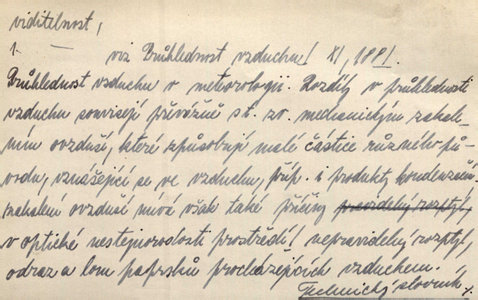 viditelnost,
1. — viz Průhlednost vzduchu! XI, 1881.
Průhlednost vzduchu v meteorologii. Rozdíly v průhlednosti
vzduchu souvisejí převážně s t. zv. mechanickým zakale-
ním ovzduší, které způsobují malé částice různého pů-
vodu, vznášející se ve vzduchu, příp. i produkty kondensační.
zakalení ovzduší mívá však také příčiny
v optické nestejnorodosti prostředí! nepravidelný rozptyl,
odraz a lom paprsků procházejících vzduchem.
Technický slovník